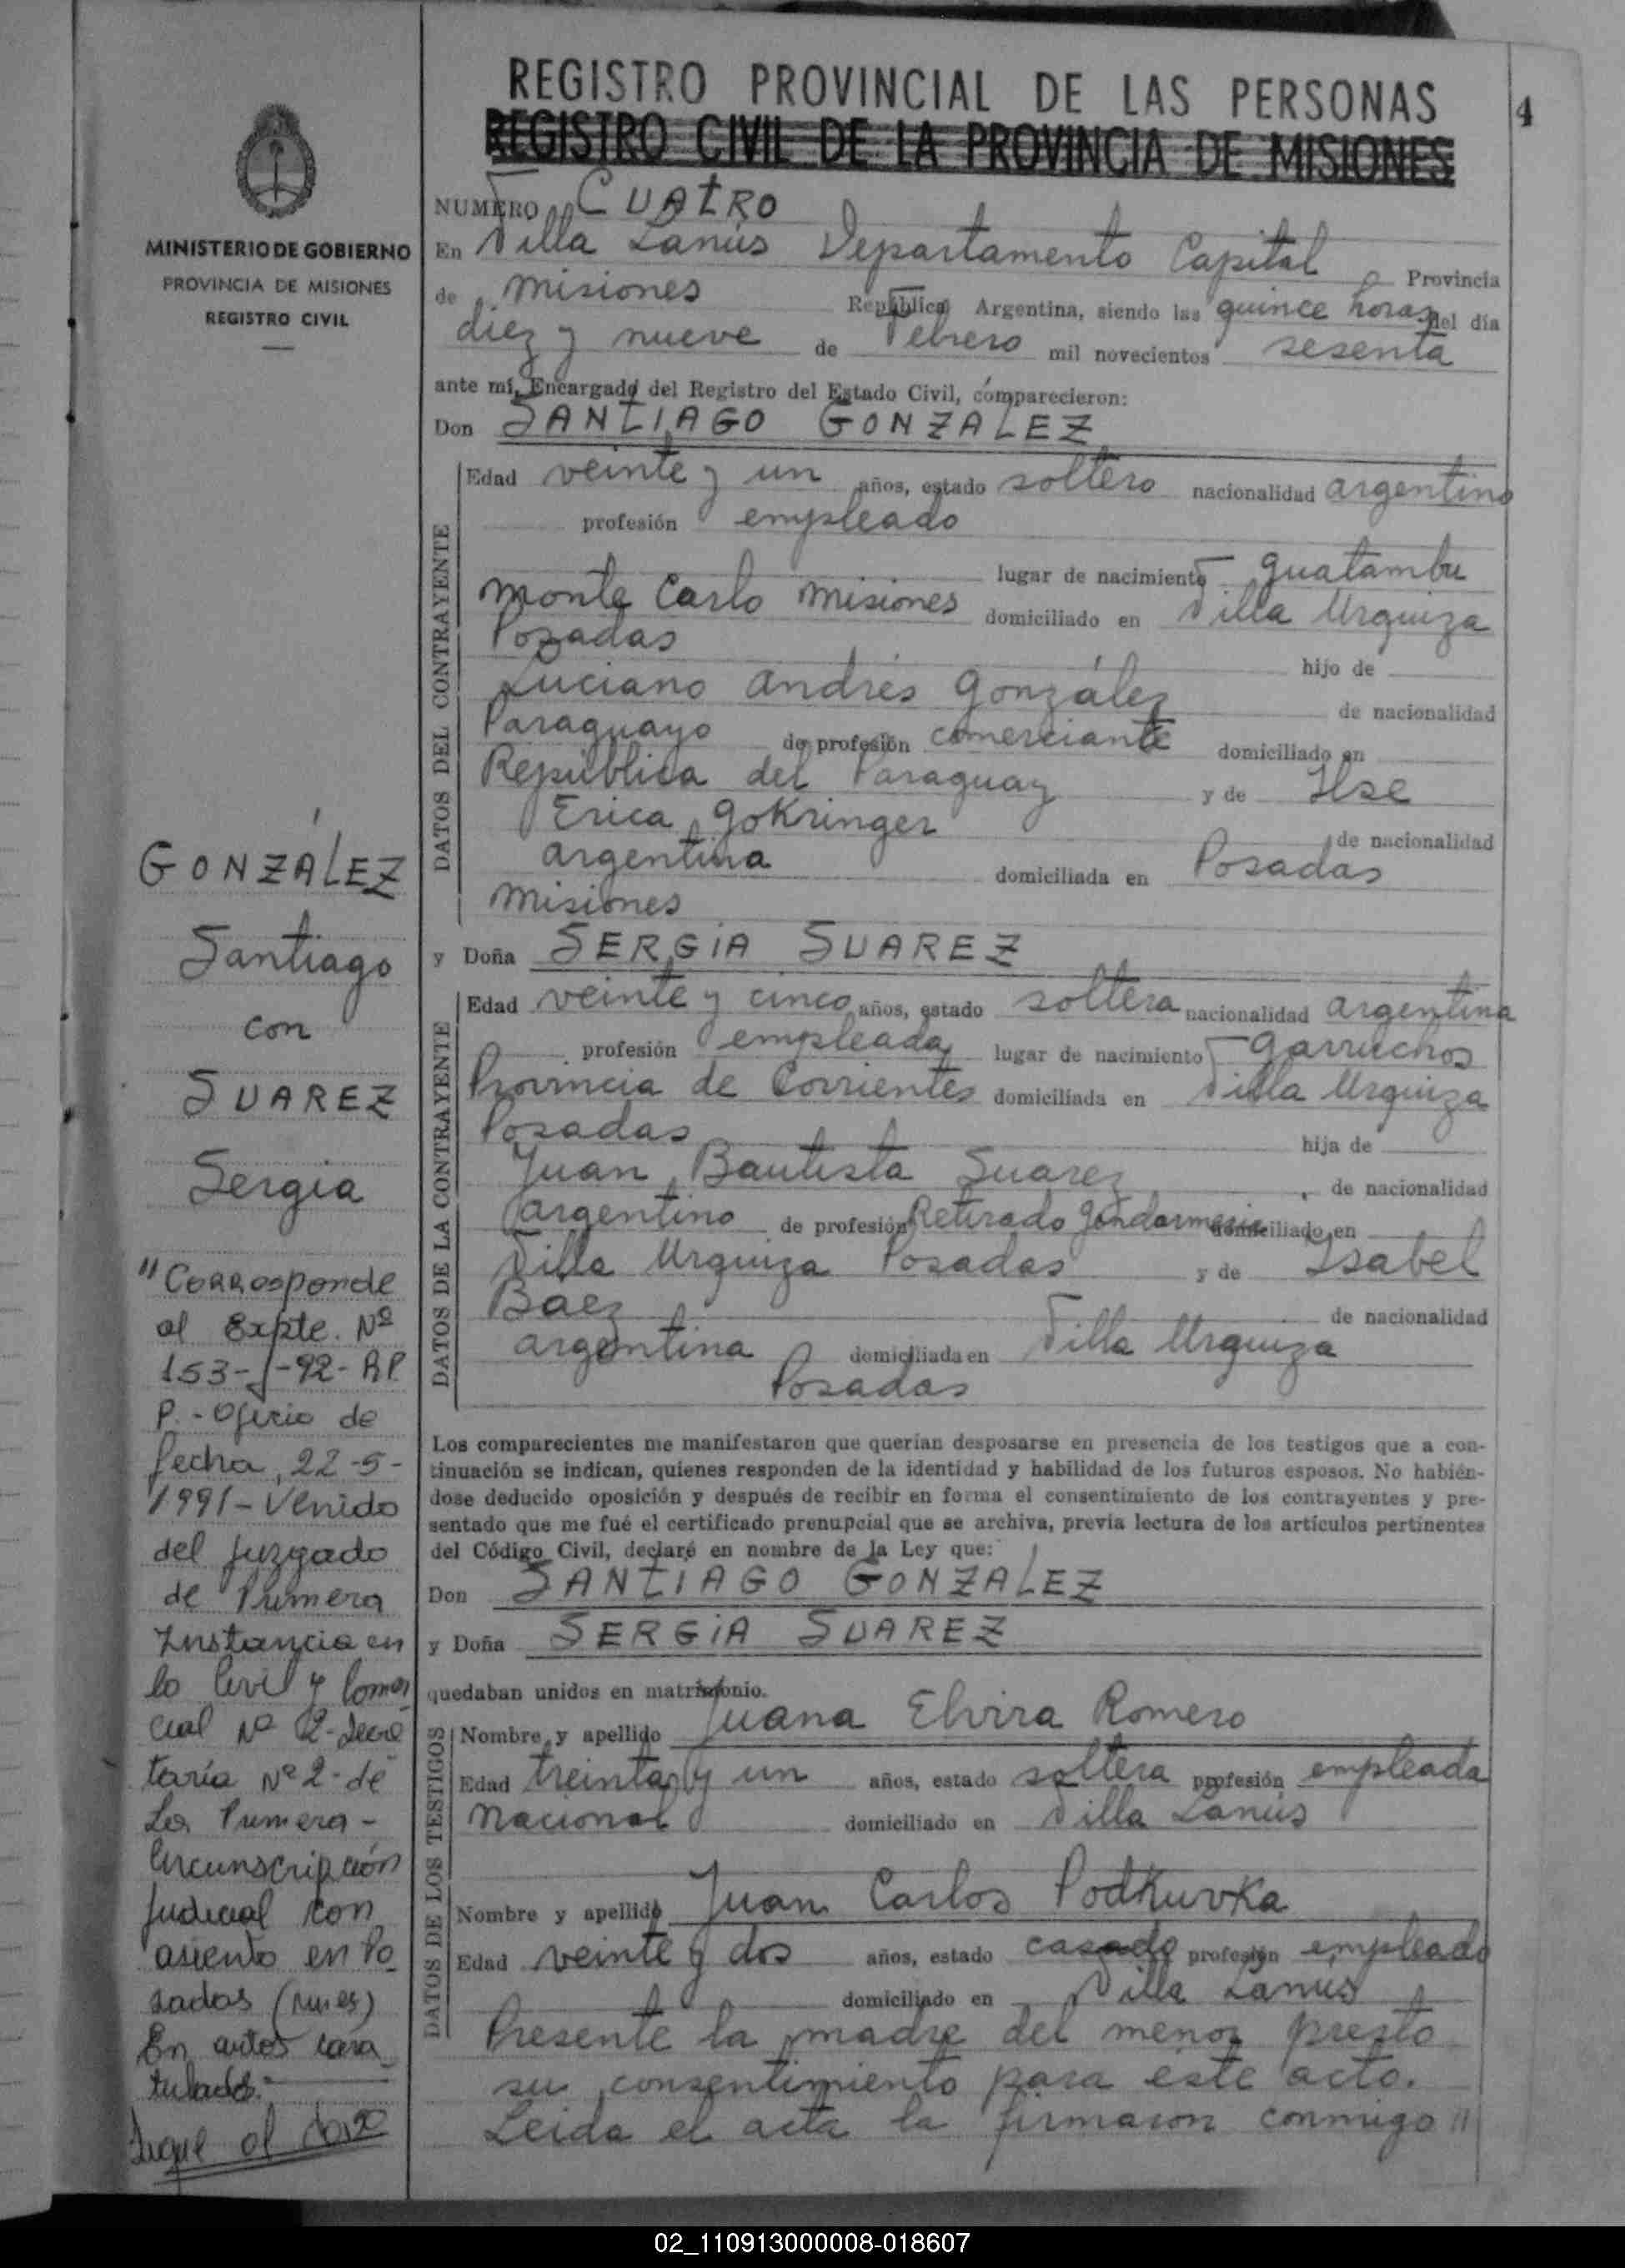 REGISTRO PROVINCIAL DE LAS PERSONAS
REGISTRO CIVIL DE LA PROVINCIA DE MISIONES
4
MINISTERIO DE GOBIERNO
PROVINCIA DE MISIONES
REGISTRO CIVIL
NUMERO CUATRO
En Villa Lanús Departamento Capital Provincia
de Misiones República Argentina, siendo las quince horas del día
diez y nueve de Febrero mil novecientos sesenta
ante mí, Encargado del Registro del Estado Civil, comparecieron:
Don SANTIAGO GONZALEZ
DATOS DEL CONTRAYENTE
Edad veinte y un años, estado soltero nacionalidad argentino
profesión empleado
lugar de nacimiento Guatambu
Monte Carlo Misiones domiciliado en Villa Urquiza
Posadas hijo de
Luciano Andrés González de nacionalidad
Paraguayo de profesión comerciante domiciliado en
República del Paraguay y de Ilse
Erica Gokringer de nacionalidad
argentina domiciliada en Posadas
Misiones
y Doña SERGIA SUAREZ
DATOS DE LA CONTRAYENTE
Edad veinte y cinco años, estado soltera nacionalidad argentina
profesión empleada lugar de nacimiento Garruchos
Provincia de Corrientes domiciliada en Villa Urquiza
Posadas hija de
Juan Bautista Suarez, de nacionalidad
argentino de profesión Retirado Gendarmeria domiciliado en
Villa Urquiza Posadas y de Isabel
Baez de nacionalidad
argentina domiciliada en Villa Urquiza
Posadas
Los comparecientes me manifestaron que querían desposarse en presencia de los testigos que a con-
tinuación se indican, quienes responden de la identidad y habilidad de los futuros esposos. No habién-
dose deducido oposición y después de recibir en forma el consentimiento de los contrayentes y pre-
sentado que me fué el certificado prenupcial que se archiva, previa lectura de los artículos pertinentes
del Código Civil, declaré en nombre de la Ley que:
Don SANTIAGO GONZALEZ
y Doña SERGIA SUAREZ
quedaban unidos en matrimonio.
DATOS DE LOS TESTIGOS
Nombre y apellido Juana Elvira Romero
Edad treinta y un años, estado soltera profesión empleada
Nacional domiciliado en Villa Lanús
Nombre y apellido Juan Carlos Podkuvka
Edad veinte y dos años, estado casado profesión empleado
domiciliado en Villa Lanús
Presente la madre del menor presto
su consentimiento para este acto.
Leida el acta la firmaron conmigo //
GONZÁLEZ
Santiago
con
SUAREZ
Sergia
"Corresponde
al Expte. Nº
153-J-92-R.P.
P.-Oficio de
fecha, 22-5-
1991-Venido
del Juzgado
de Primera
Instancia en
lo Civil y Comer
cial Nº 2-Secre
taría Nº 2-de
La Primera-
Circunscripción
Judicial con
asiento en Po
sadas (Mnes)
En autos cara
tulados:
Sigue al dorso
02_110913000008-018607